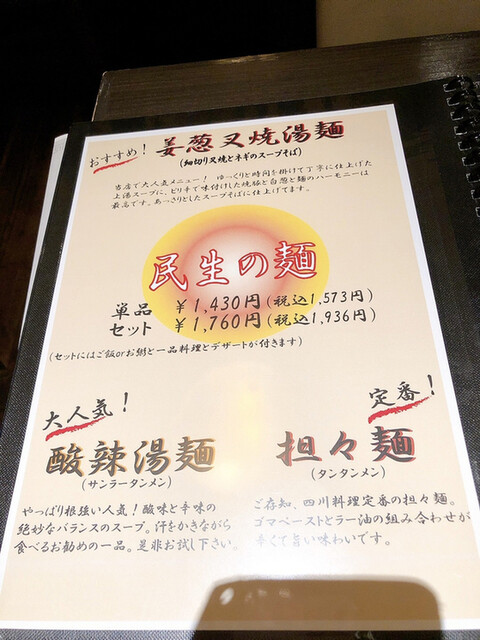 おすすめ!
姜葱叉焼湯麺
(細切り叉焼とネギのスープそば)
当店で大人気メニュー! ゆっくりと時間を掛けて丁寧に仕上げた
上湯スープに、ピリ辛で味付けした焼豚と白葱と麺のハーモニーは
最高です。あっさりとしたスープそばに仕上げてます。
民生の麺
単品 ¥1,430円(税込1,573円)
セット ¥1,760円(税込1,936円)
(セットにはご飯orお粥と一品料理とデザートが付きます)
大人気!
酸辣湯麺
(サンラータンメン)
やっぱり根強い人気!酸味と辛味の
絶妙なバランスのスープ。汗をかきながら
食べるお勧めの一品。是非お試し下さい。
定番!
担々麺
(タンタンメン)
ご存知、四川料理定番の担々麺。
ゴマペーストとラー油の組み合わせが
辛くて旨い味わいです。